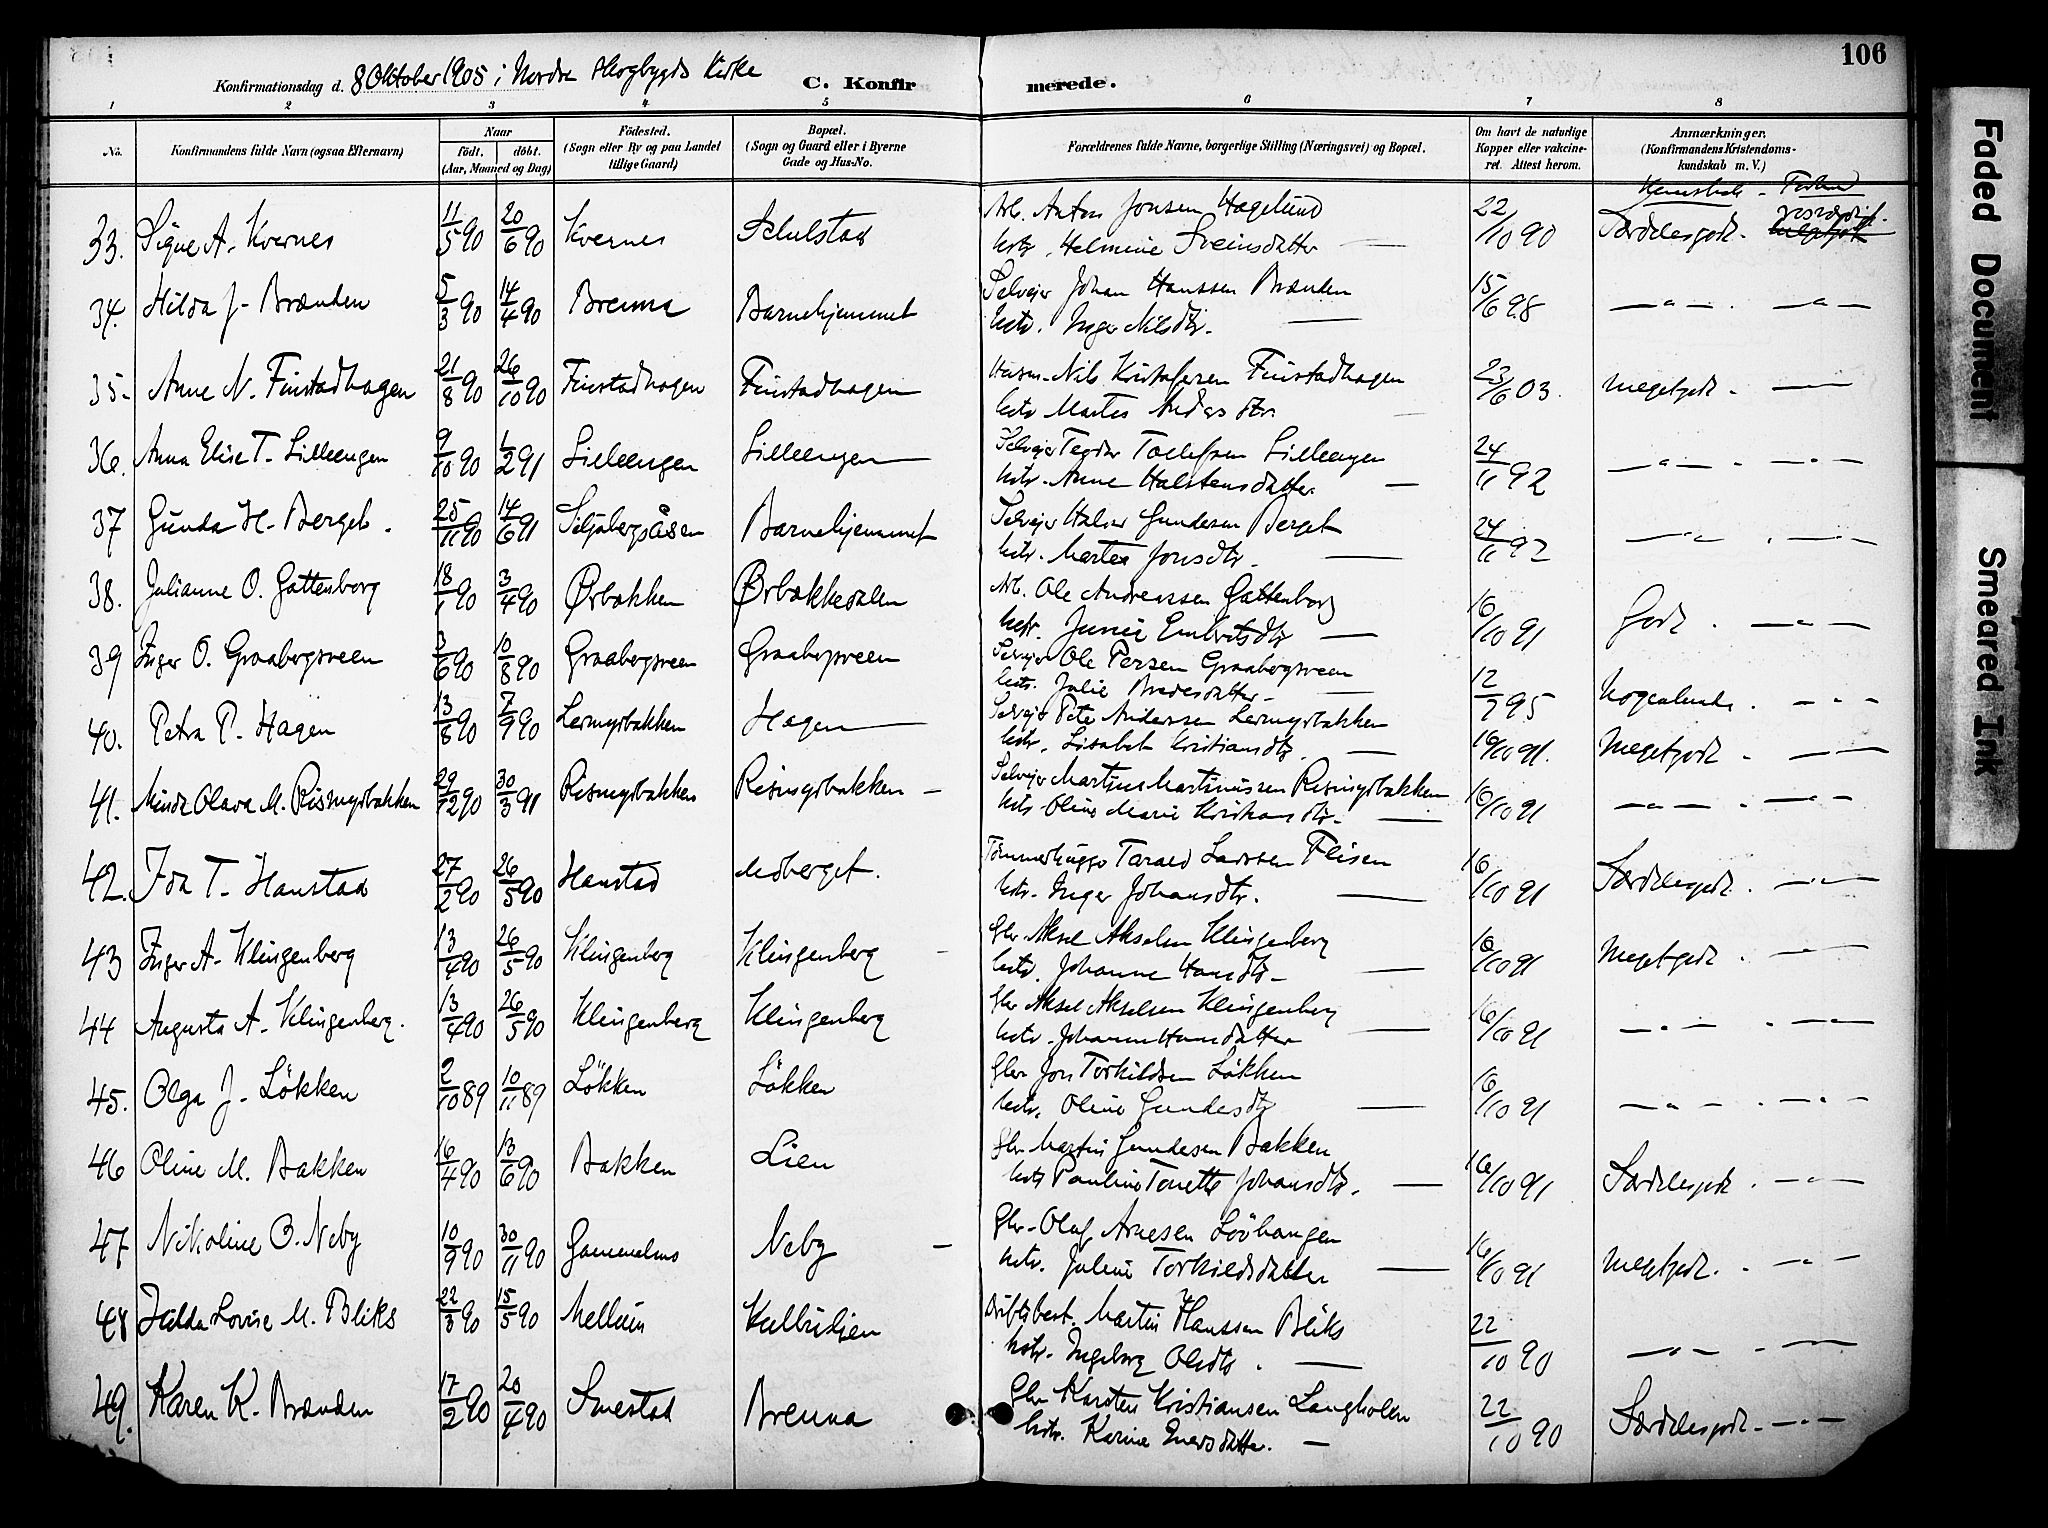 106
Konfirmationsdag d. 8 Oktober 1905 i Nordre Skogbygds Kirke
C. Konfirmerede.
1 2 3 4 5 6 7 8
No. Konfirmandens fulde Navn (ogsaa Efternavn) Naar födt. döbt. (Aar, Maaned og Dag) Födested. (Sogn eller By og paa Landet tillige Gaard) Bopæl. (Sogn og Gaard eller i Byerne Gade og Hus-No. Forældrenes fulde Navne, borgerlige Stilling (Næringsvei) og Bopæl. Om havt de naturlige Kopper eller vakcineret. Attest herom. Anmærkninger. (Konfirmandens Kristendomskundskab m. V.)
33. Signe A. Kvernes 11/5 90 20/6 90 Kvernes Schulstad Arb. Anton Jonsen Hagelund 22/10 90 Særdelesgodt.
Helmine Sveinsdatter —
34. Hilda J. Brænden 5/3 90 14/4 90 Brenna Barnehjemmet Selveier Johan Hanssen Brænden 15/6 98 — " — — " —
Inger Nilsdtr. —
35. Anne N. Finstadhagen 21/8 90 26/10 90 Finstadhagen Finstadhagen Husm. Nils Kristofersen Finstadhagen 23/6 03. Megetgodt. —
Martea Andersdtr.
36. Anna Elise T. Lilleengen 9/10 90 1/2 91 Lilleengen Lilleengen Selveier Tollefsen Lilleengen 24/11 92 — " — . — " —
Anne Halstensdatter. —
37 Gunda H. Berget. 25/11 90 14/6 91 Seljebergsåsen Barnehjemmet Selveier Halvor Gundersen Berget 24/11 92 — " — . — " —
Martea Jonsdtr. —
38. Julianne O. Gattenborg 18/1 90 3/4 90 Ørbakken Ørbakkedalen Arb. Ole Andreassen Gattenborg 16/10 91 Godt. — " —
Junie Embretsdtr —
39 Inger O. Graabergsveen 3/6 90 10/8 90 Graabergsveen Graabergsveen Selveier Ole Persen Graabergsveen 12/7 95 Nogenlunde. — " —
Julie Bredesdatter — —
40. Petra P. Hagen 13/8 90 7/9 90 Lermyrbakken Hagen Selveier Peter Anderssen Lermyrbakken 16/10 91. Megetgodt. — " —
Lisabet Kristiansdtr. —
41. Minda Olava M. Rismyrbakken 29/12 90 30/3 91 Rismyrbakken Rismyrbakken — Selveier Martinus Martinussen Rismyrbakken 16/10 91 — " — . — " —
Oline Marie Kristiansdtr. —
42. Ida T. Hanstad 27/2 90 26/5 90 Hanstad Tömmerhugger Tarald Larssen Fleisen 16/10 91 Særdelesgodt. — " —
Inger Johansdtr. —
43 Inger A. Klingenberg 13/4 90 26/5 90 Klingenberg Klingenberg Gbr Aksel Akselsen Klingenberg 16/10 91 Megetgodt. — " —
Johanne Hansdtr — —
44 Augusta A. Klingenberg. 13/4 90 26/5 90 Klingenberg Klingenberg Gbr Aksel Akselsen Klingenberg 16/10 91 — " — . — " —
Johanne Hansdatter —
45. Olga J. Løkken 2/10 89 10/11 89 Løkken Løkken Gbr Jon Torkildsen Løkken 16/10 91 — " — . — " —
Oline Gundersdtr —
46 Oline M. Bakken 16/4 90 13/6 90 Bakken Lien Gbr Martin Gundersen Bakken 16/10 91 Særdelesgodt. — " —
Pauline Tonette Johansdtr. —
47 Nikoline O. Neby 10/9 90 30/11 90 Neby — Gbr. Olaf Arnesen Lövhaugen 16/10 91 Megetgodt. . — " —
Juline Torkildsdatter —
48 Hilda Lovise M. Bliks 22/3 90 15/5 90 Mellum Martin Hanssen Bliks 22/10 90 — " — . — " —
Ingeborg Olsdtr. —
49. Karen K. Brænden 17/2 90 20/4 90 Smestad Brenna Gbr Karsten Kristiansen Langholen 22/10 90 Særdelesgodt. — " —
Karine Enersdatter. —
Faded Document
Smeared Ink